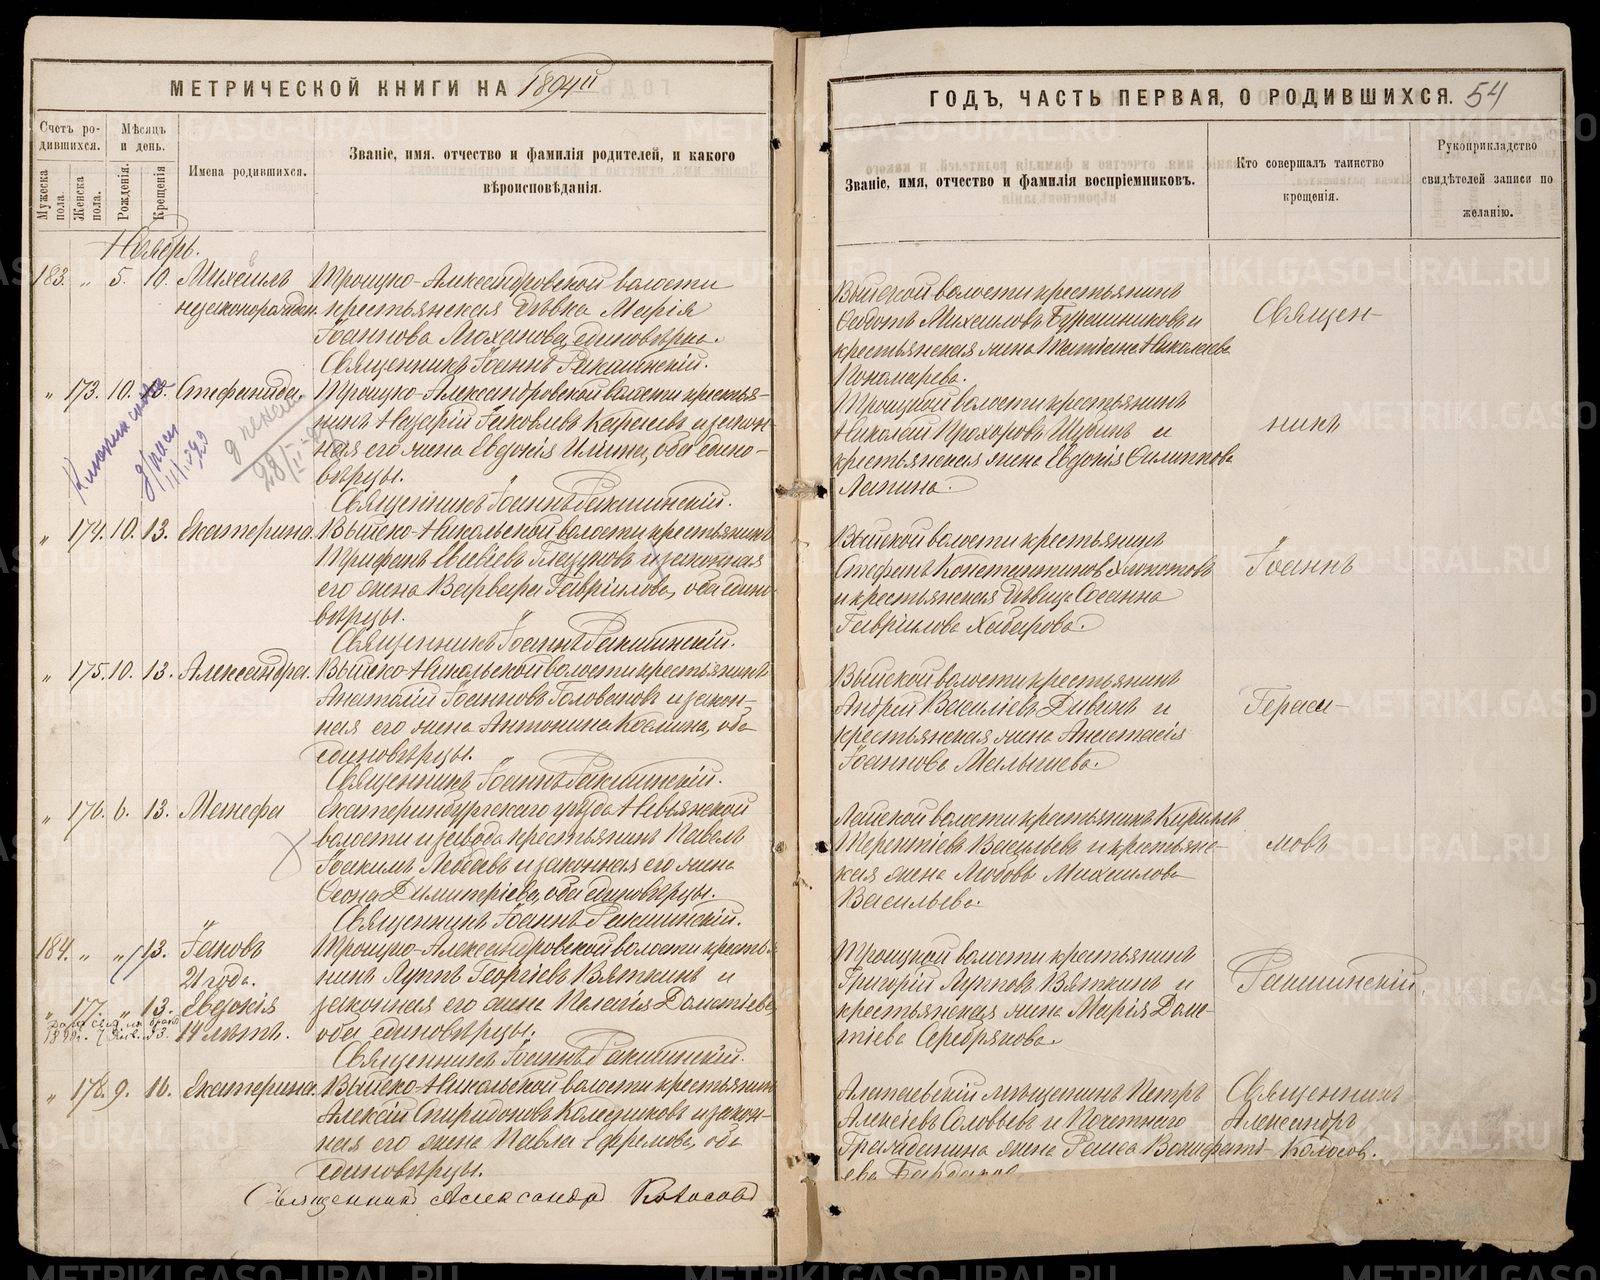 МЕТРИЧЕСКОЙ КНИГИ НА 1894й
Счетъ родившихся.
Мужеска пола.
Женска пола.
Мѣсяцъ и день.
Рожденія.
Крещенія
Имена родившихся.
Званіе, имя. отчество и фамилія родителей, и какого
вѣроисповѣданія.
Ноябрь.
183. " 5. 10. Михаилъ
незаконорожден.
Троицко-Александровской волости
крестьянская дѣвка Марія
Іоаннова Моханова, единовѣрка.
Священникъ Іоаннъ Ракшинскій.
" 173. 10. Стефанида.
Троицко-Александровской волости крестья-
нинъ Назарій Іаковлевъ и закон-
ная его жена Евдокія, оба едино-
вѣрцы.
Священникъ Іоаннъ Ракшинскій.
28/II
" 174. 10. 13. Екатерина.
Выйско-Никольской волости крестьянинъ
Трифонъ Глазуновъ и законная
его жена Варвара Гавріилова, оба едино-
вѣрцы.
Священникъ Іоаннъ Ракшинскій.
" 175. 10. 13. Александра.
Выйско-Никольской волости крестьянинъ
Анатолій Іоанновъ Головановъ и закон-
ная его жена Антонина Козмина, оба
единовѣрцы.
Священникъ Іоаннъ Ракшинскій.
" 176. 6. 13. Манефа
Екатеринбургскаго уѣзда Невьянской
волости и завода крестьянинъ Павелъ
Іоакимъ Лебедевъ и законная его жена
Димитріева, оба единовѣрцы.
Священникъ Іоаннъ Ракшинскій.
184. " " 13. Іаковъ
21 года.
" 177. " 13. Евдокія
11 лѣтъ.
Троицко-Александровской волости кресть-
нинъ Луппъ Георгіевъ Вяткинъ и
законная его жена Пелагія Дометіева,
оба единовѣрцы.
Священникъ Іоаннъ Ракшинскій.
" 178. 9. 16. Екатерина.
Выйско-Никольской волости крестьянинъ
Алексій Спиридоновъ Калединовъ и закон-
ная его жена Павла Ефремова, оба
единовѣрцы.
Священникъ Александръ Колосовъ
ГОДЪ, ЧАСТЬ ПЕРВАЯ, О РОДИВШИХСЯ. 54
Званіе, имя, отчество и фамилія воспріемниковъ.
Кто совершалъ таинство
крещенія.
Рукоприкладство
свидѣтелей записи по
желанію.
Выйской волости крестьянинъ
Ѳедотъ Михаиловъ и
крестьянская жена Татіана Николаева
Пономарева.
Троицкой волости крестьянинъ
Николай Прохоровъ и
крестьянская жена Евдокія Филиппова
Лапина.
Выйской волости крестьянинъ
Стефанъ Константиновъ
и крестьянская дѣвица Сосанна
Гавріилова Хабарова.
Выйской волости крестьянинъ
Андрей Василіевъ Дивинъ и
крестьянская жена Анастасія
Іоаннова Малышева.
Лайской волости крестьянинъ Кириллъ
Терентіевъ Васильевъ и крестьянс-
кая жена Любовь Михаилова
Васильева.
Троицкой волости крестьянинъ
Григорій Лупповъ Вяткинъ и
крестьянская жена Марія Доме-
тіева Серебрякова.
Алапаевскій мѣщанинъ Петръ
Алексіевъ Соловьевъ и Почетнаго
Гражданина жена Раиса Вонифаті-
ева
Священ-
никъ
Іоаннъ
Гераси-
мовъ
Ракшинскій.
Священникъ
Александръ
Колосов.
METRIKI.GASO-URAL.RU